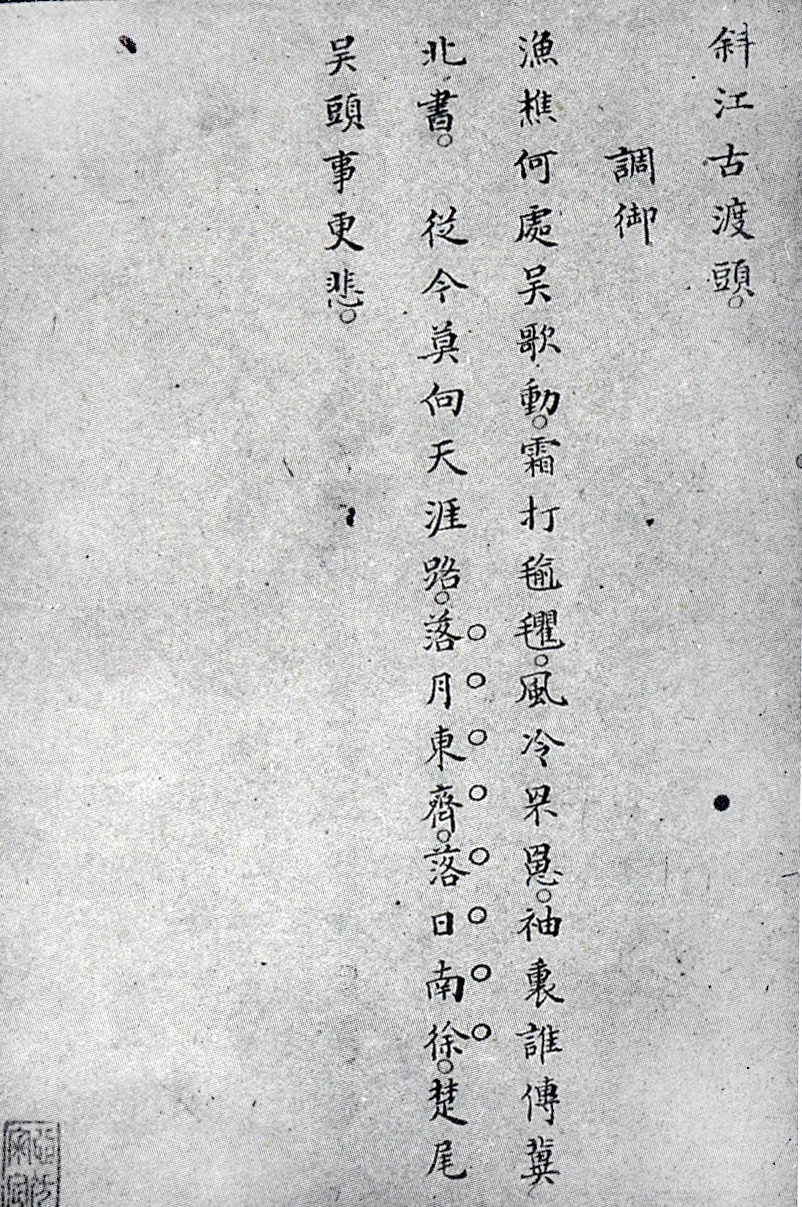 斜江古渡頭。
調御
漁樵何處吴歌動。霜打毺氍。風冷罘罳。袖裏誰傳冀
北書。　從今莫向天涯路。落月東齊。落日南徐。楚尾
吴頭事更悲。